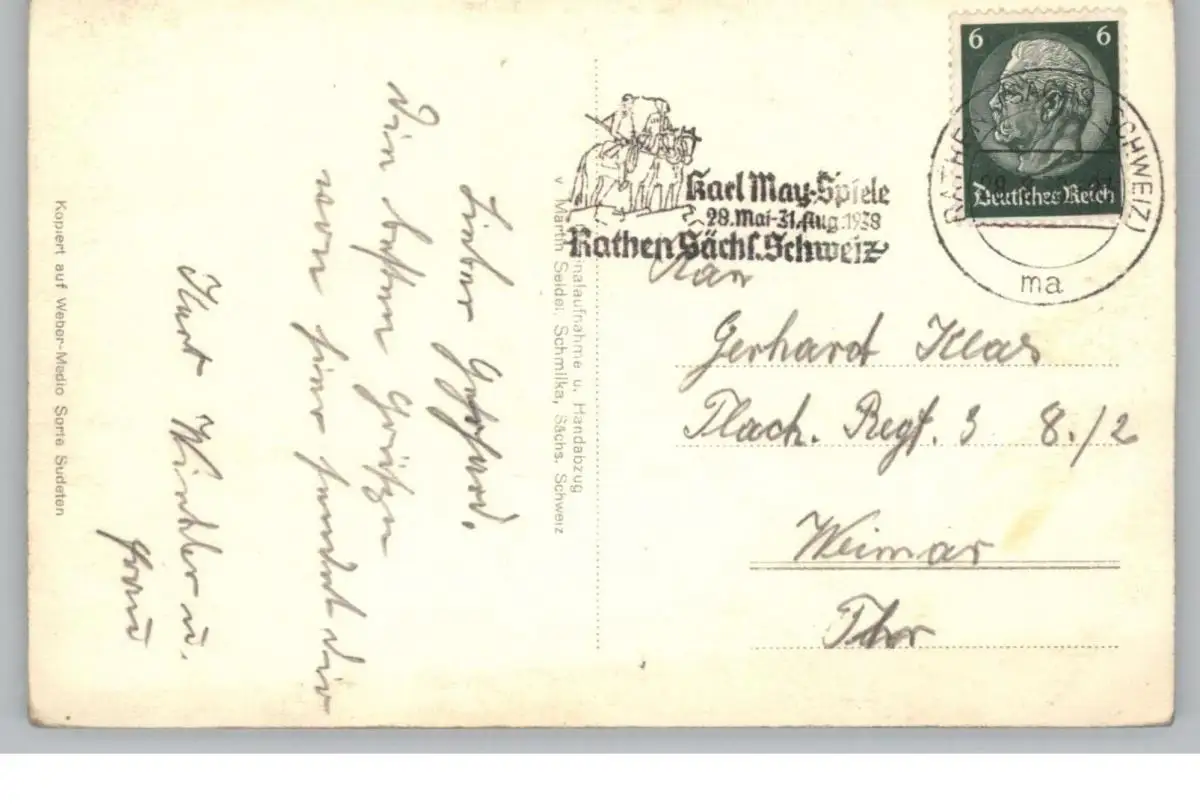 Lieber Gerhard,
Die besten Grüße
von hier sendet dir
Kurt Winkler u.
Frau
Kopiert auf Weber-Medio Sorte Sudeten
inalaufnahme u. Handabzug
v Martin Seidel, Schmilka, Sächs. Schweiz
Karl May-Spiele
28. Mai-31. Aug. 1938
Rathen Sächs. Schweiz
6 6
Deutsches Reich
RATHEN (SÄCHS SCHWEIZ)
ma
Gerhard Klas
Regt. 3 8./2
Weimar
Thr